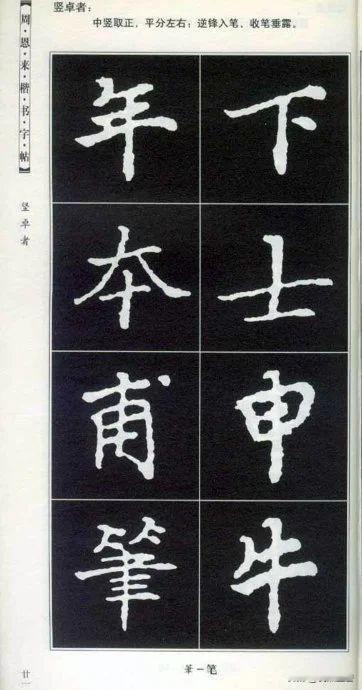 竖卓者:
中竖取正,平分左右;逆锋入笔、收笔垂露。
【周·恩·来·楷·书·字·帖】
竖卓者
下士申牛
年本甫筆
筆-笔
廿